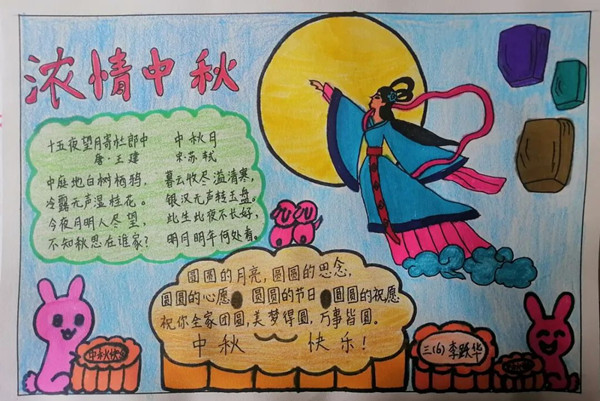 浓情中秋
十五夜望月寄杜郎中
唐·王建
中庭地白树栖鸦,
冷露无声湿桂花。
今夜月明人尽望,
不知秋思在谁家?
中秋月
宋·苏轼
暮云收尽溢清寒,
银汉无声转玉盘。
此生此夜不长好,
明月明年何处看。
圆圆的月亮,圆圆的思念,
圆圆的心愿 圆圆的节日 圆圆的祝愿
祝你全家团圆,美梦得圆,万事皆圆。
中秋 快乐!
中秋快乐
三(6) 李跃华